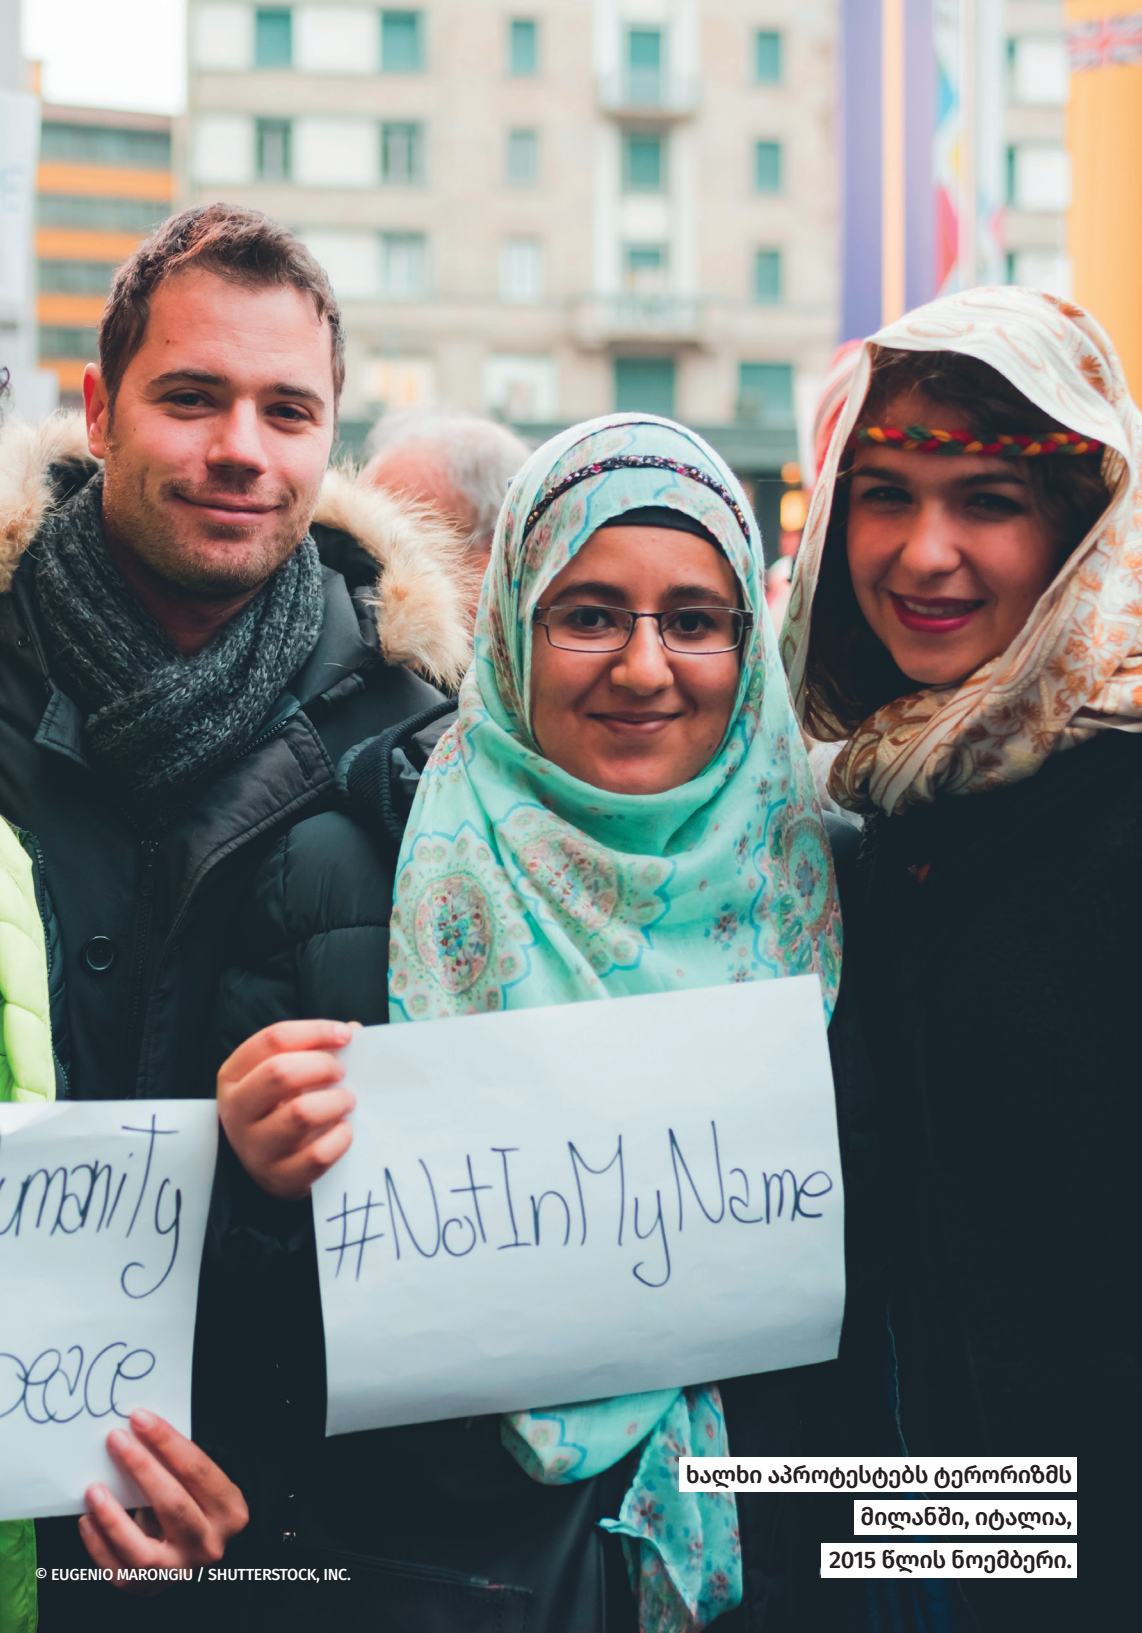 umanity
peace
#NotInMyName
ხალხი აპროტესტებს ტერორიზმს
მილანში, იტალია,
2015 წლის ნოემბერი.
© EUGENIO MARONGIU / SHUTTERSTOCK, INC.